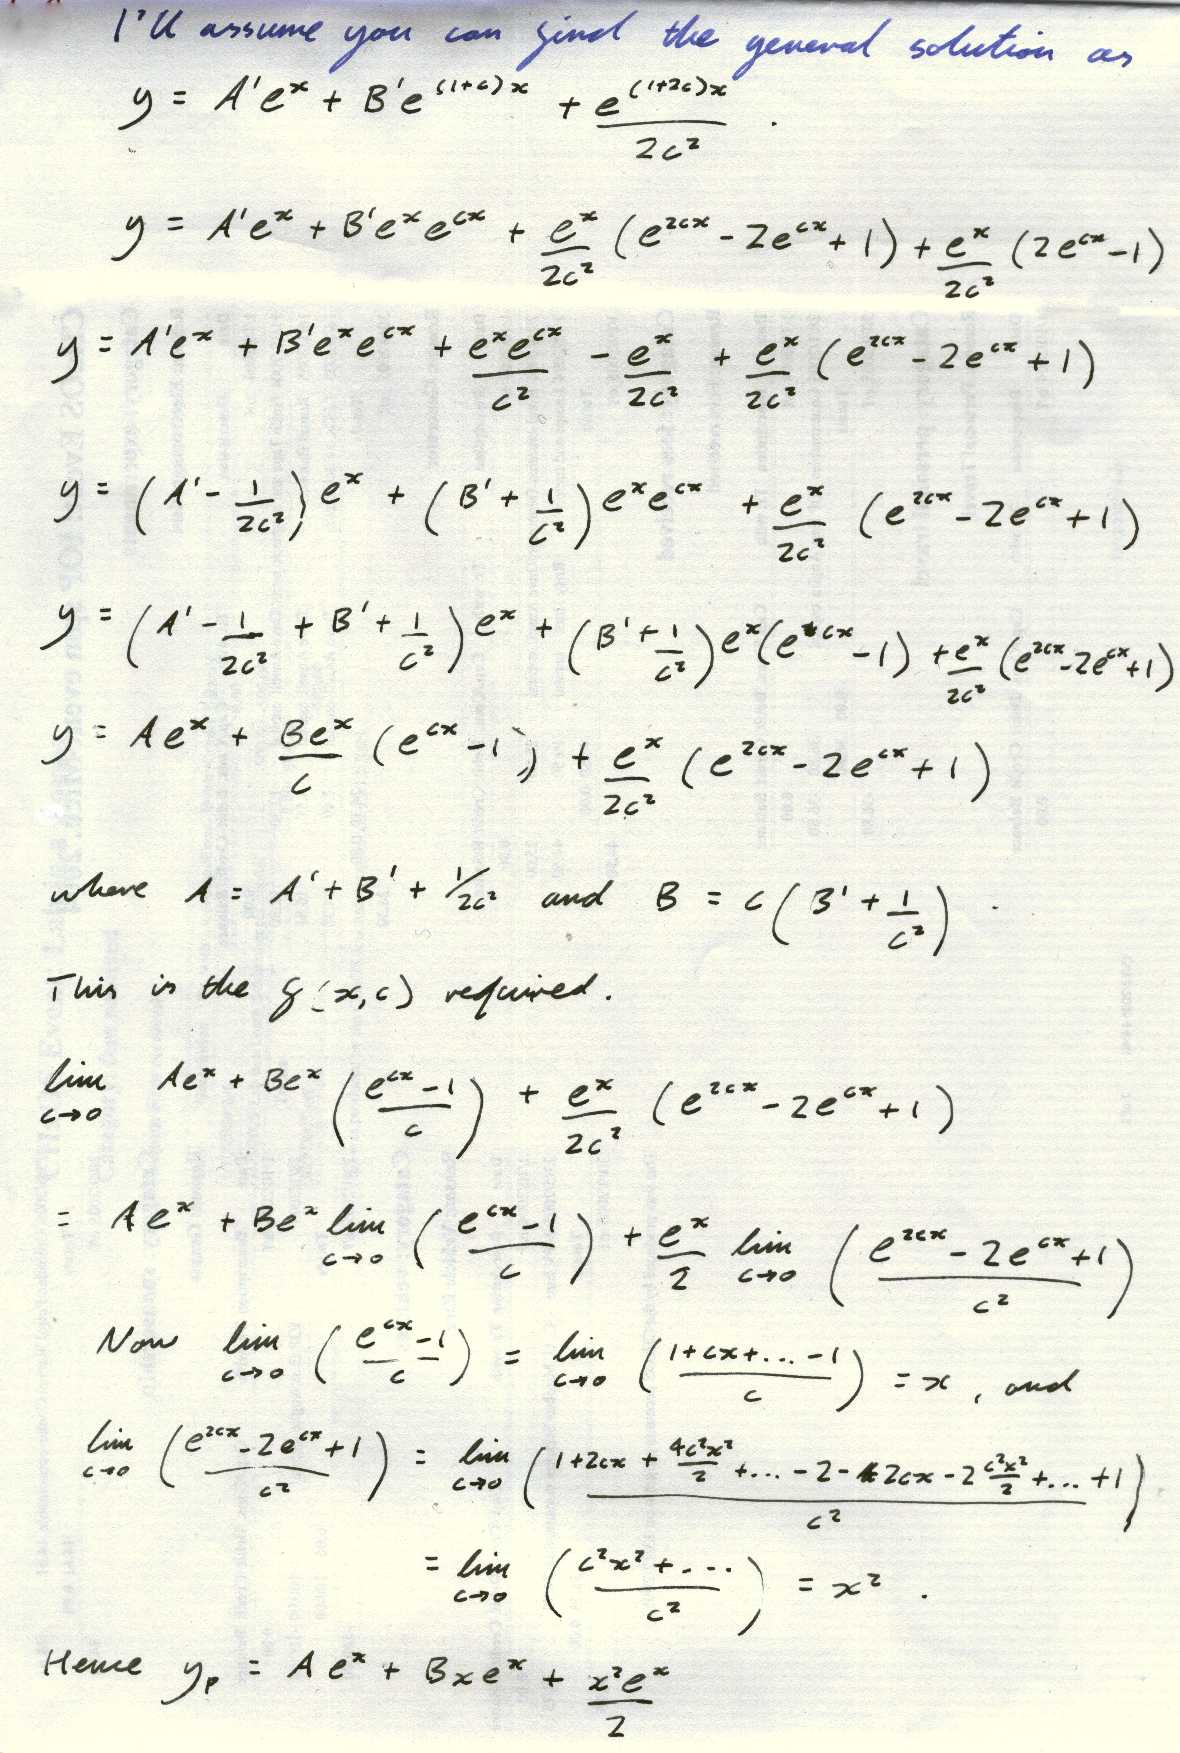 I'll assume you can find the general solution as
y = A'eˣ + B'e^((1+c)x) + e^((1+2c)x)/2c² .
y = A'eˣ + B'eˣe^(cx) + eˣ/2c² (e^(2cx) - 2e^(cx) + 1) + eˣ/2c² (2e^(cx) - 1)
y = A'eˣ + B'eˣe^(cx) + eˣe^(cx)/c² - eˣ/2c² + eˣ/2c² (e^(2cx) - 2e^(cx) + 1)
y = (A' - 1/2c²) eˣ + (B' + 1/c²) eˣe^(cx) + eˣ/2c² (e^(2cx) - 2e^(cx) + 1)
y = (A' - 1/2c² + B' + 1/c²) eˣ + (B' + 1/c²) eˣ(e^(cx) - 1) + eˣ/2c² (e^(2cx) - 2e^(cx) + 1)
y = Aeˣ + Beˣ/c (e^(cx) - 1) + eˣ/2c² (e^(2cx) - 2e^(cx) + 1)
where A = A' + B' + 1/2c² and B = c(B' + 1/c²) .
This is the f(x,c) required.
lim c→0 Aeˣ + Beˣ ((e^(cx) - 1)/c) + eˣ/2c² (e^(2cx) - 2e^(cx) + 1)
= Aeˣ + Beˣ lim c→0 ((e^(cx) - 1)/c) + eˣ/2 lim c→0 ((e^(2cx) - 2e^(cx) + 1)/c²)
Now lim c→0 ((e^(cx) - 1)/c) = lim c→0 ((1 + cx + ... - 1)/c) = x , and
lim c→0 ((e^(2cx) - 2e^(cx) + 1)/c²) = lim c→0 ((1 + 2cx + 4c²x²/2 + ... - 2 - 2cx - 2 c²x²/2 + ... + 1)/c²)
= lim c→0 ((c²x² + ...)/c²) = x² .
Hence yₚ = Aeˣ + Bxeˣ + x²eˣ/2